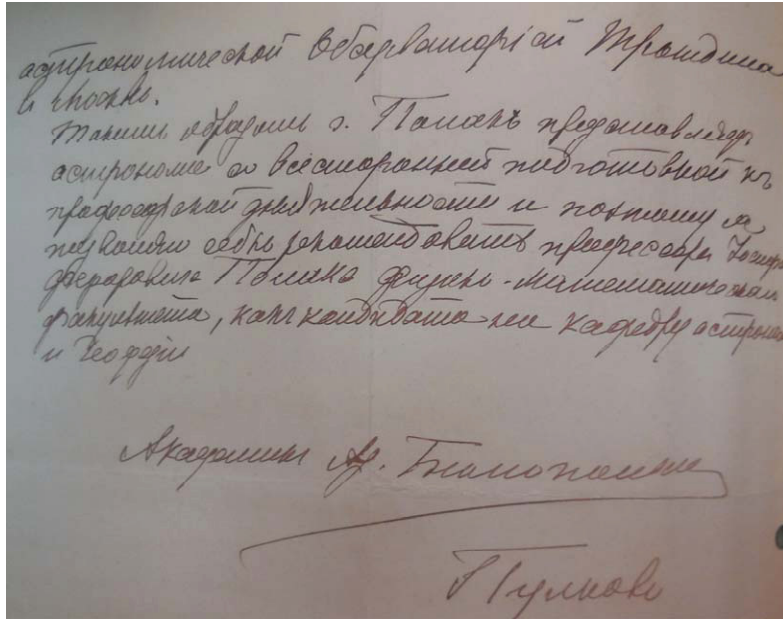 астрономической Обсерваторіей Трындина
в Москвѣ.
Такимъ образомъ г. Полакъ представляетъ
астронома со всесторонней подготовкой къ
профессорской дѣятельности и поэтому я
позволяю себѣ рекомендовать профессора Іосифа
Федоровича Полака физико-математическому
факультета, какъ кандидата на кафедру астрономіи
и Геодезіи
Академикъ А. Бѣлопольскій
Пулково